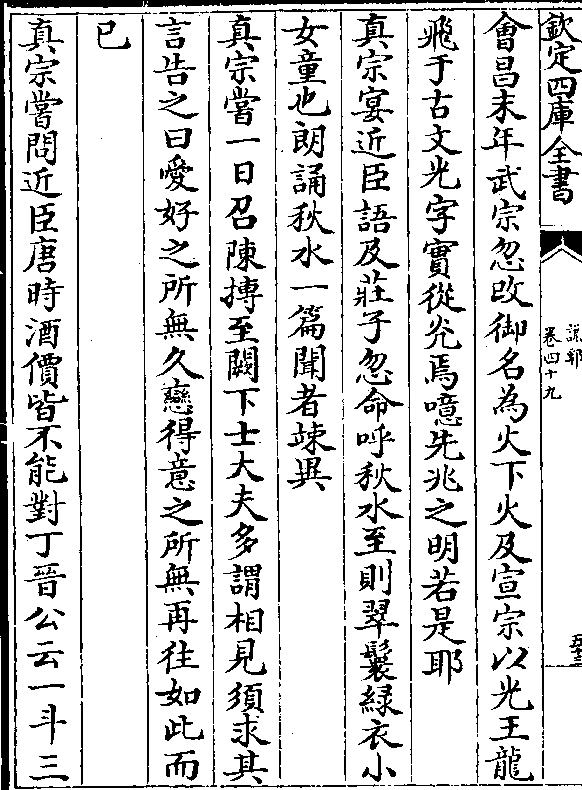 欽定四庫全書
說郛
卷四十九
會昌末年武宗忽改御名為火下火及宣宗以光王龍
飛于古文光字實從炎焉噫先兆之明若是耶
真宗宴近臣語及莊子忽命呼秋水至則翠鬟緑衣小
女童也朗誦秋水一篇聞者竦異
真宗嘗一日召陳摶至闕下士大夫多謂相見須求其
言告之曰愛好之所無久戀得意之所無再往如此而
已
真宗嘗問近臣唐時酒價皆不能對丁晉公云一斗三